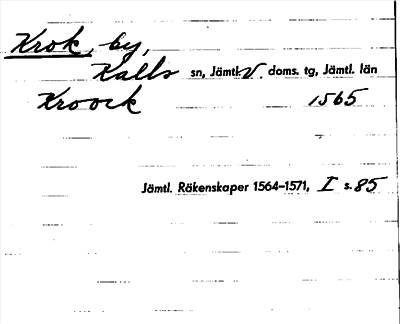 Krok, by,
Kalls sn, Jämtl. V. doms. tg, Jämtl. län
Kroock 1565
Jämtl. Räkenskaper 1564-1571, I s. 85